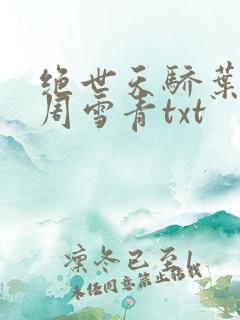 绝世天骄叶
周雪青txt
凛冬已至l
未经同意禁止转载